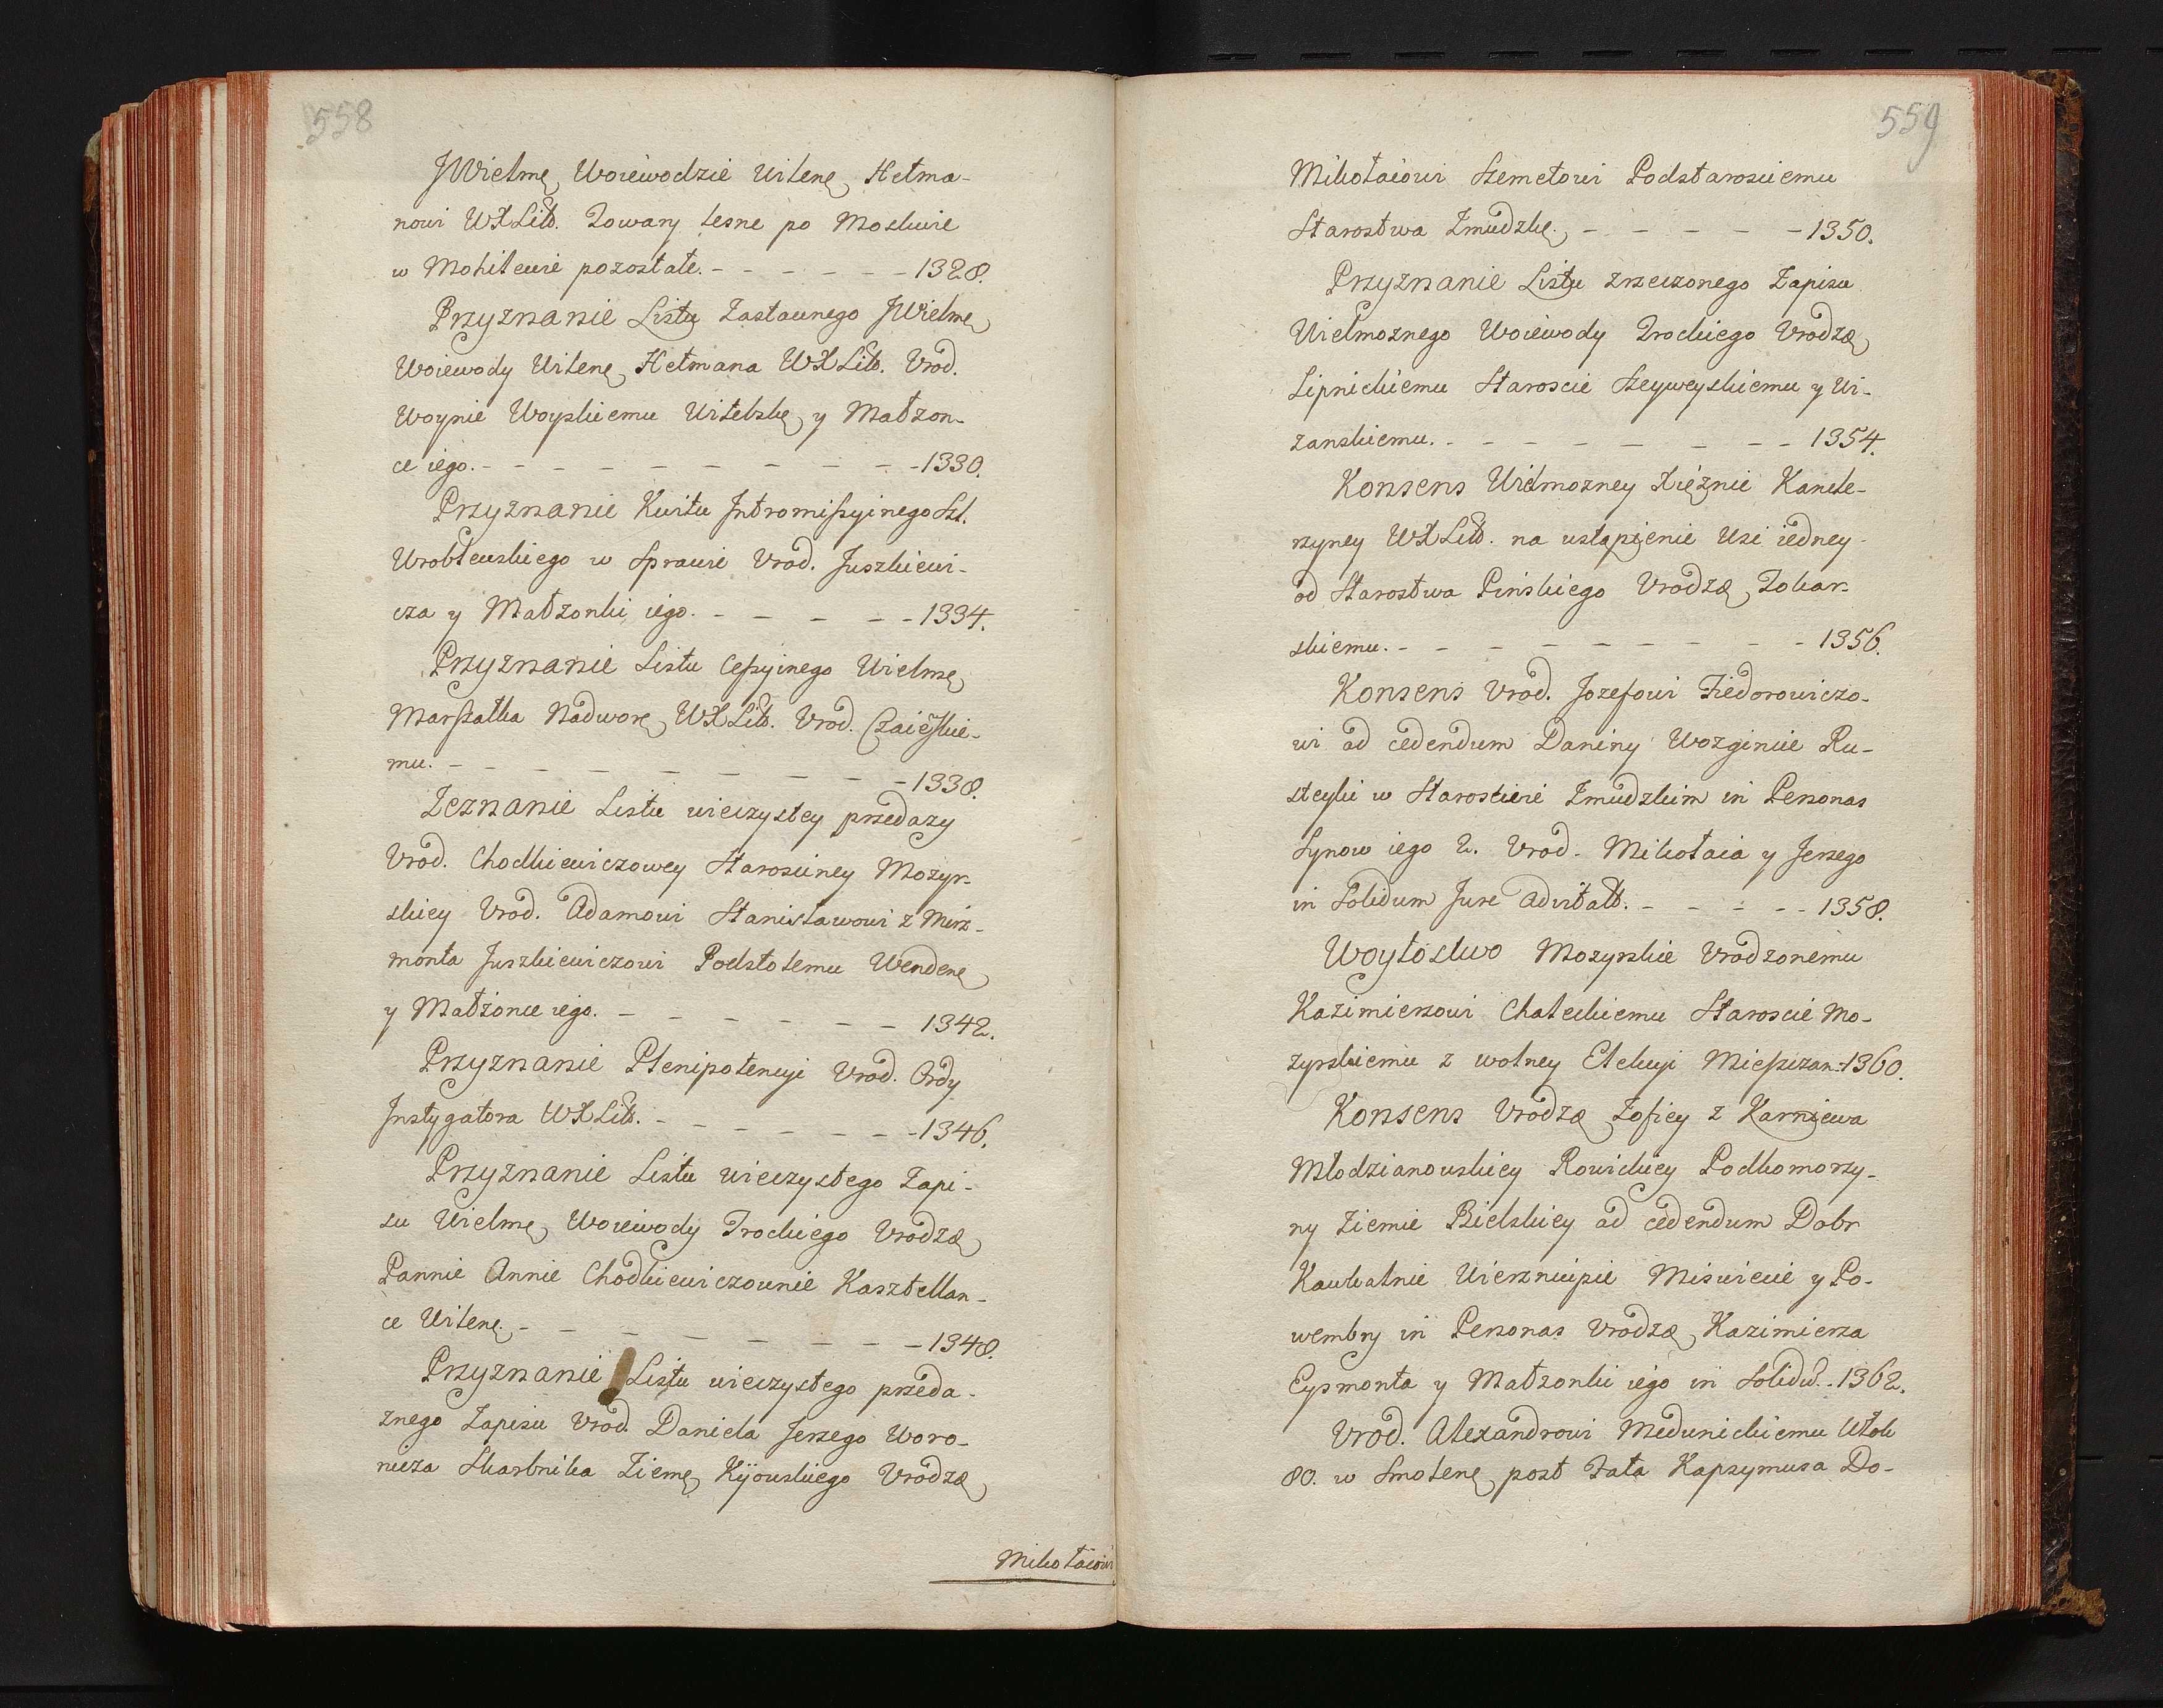 558
JWielmę Woiewodzie Wilenę Hetma-
nowi WXLitt. Towary lesne po Moskwie
w Mohilewie pozostałe. - - - - - - 1328.
Przyznanie Listu Zastawnego JWielmę
Woiewody Wilenę Hetmana WXLitt. Vrod.
Woynie Woyskiemu Witebskę y Małzon-
ce iego. - - - - - - - - - 1330.
Przyznanie Kwitu Jntromissyinego Szl.
Wroblewskiego w Sprawie Vrod. Juszkiewi-
cza y Małzonki iego. - - - - - 1334.
Przyznanie Listu Cessyinego Wielmę
Marszałka Nadworę WXLitt. Vrod. Czaieskie-
mu. - - - - - - - - - 1338.
Zeznanie Listu wieczystey przedazy
Vrod. Chodkiewiczowey Starosciney Mozyr-
skiey Vrod. Adamowi Stanisławowi z Mirz-
monta Juszkiewiczowi Podstolemu Wendenę
y Małżonce iego. - - - - - - 1342.
Przyznanie Plenipotencyi Vrod. Ordy
Jnstygatora WXLitt. - - - - - - 1346.
Przyznanie Listu wieczystego Zapi-
su Wielmę Woiewody Trockiego Vrodzę
Pannie Annie Chodkiewiczownie Kasztellan-
ce Wilenę. - - - - - - - - 1348.
Przyznanie Listu wieczystego przeda-
znego Zapisu Vrod. Daniela Jerzego Woro-
nicza Skarbnika Ziemę Kijowskiego Vrodzę
Mikołaiowi
559
Mikołaiowi Szemetowi Podstarosciemu
Starostwa Zmudzkę. - - - - - 1350.
Przyznanie Listu zrzeczonego Zapisu
Wielmoznego Woiewody Trockiego Vrodzę
Lipnickiemu Staroscie Szeyweyskiemu y Wi-
zanskiemu. - - - - - - - - 1354.
Konsens Wielmozney Xiężnie Kancle-
rzyney WXLitt. na ustąpienie Wsi iedney
od Starostwa Pinskiego Vrodzę Tokar-
skiemu. - - - - - - - - 1356.
Konsens Vrod. Jozefowi Fiedorowiczo-
wi ad cedendum Daniny Wozginie Ru-
steyki w Starostwie Zmudzkim in Personas
Synow iego 2. Vrod. Mikołaia y Jerzego
in Solidum Jure Advitalt. - - - - - 1358.
Woytostwo Mozyrskie Vrodzonemu
Kazimierzowi Chaleckiemu Staroscie Mo-
zyrskiemu z wolney Elekcyi Mieszczan. 1360.
Konsens Vrodzę Zofiey z Karniewa
Młodzianowskiey Rowickiey Podkomorzy-
ny Ziemie Bielskiey ad cedendum Dobr
Kaukalnie Wierznupie Miswicie y Po-
wembry in Personas Vrodzę Kazimierza
Eysmonta y Małzonki iego in Solidu. 1362.
Vrod. Alexandrowi Medunickiemu Włok
80. w Smolenę post Fata Kapsymusa Do-